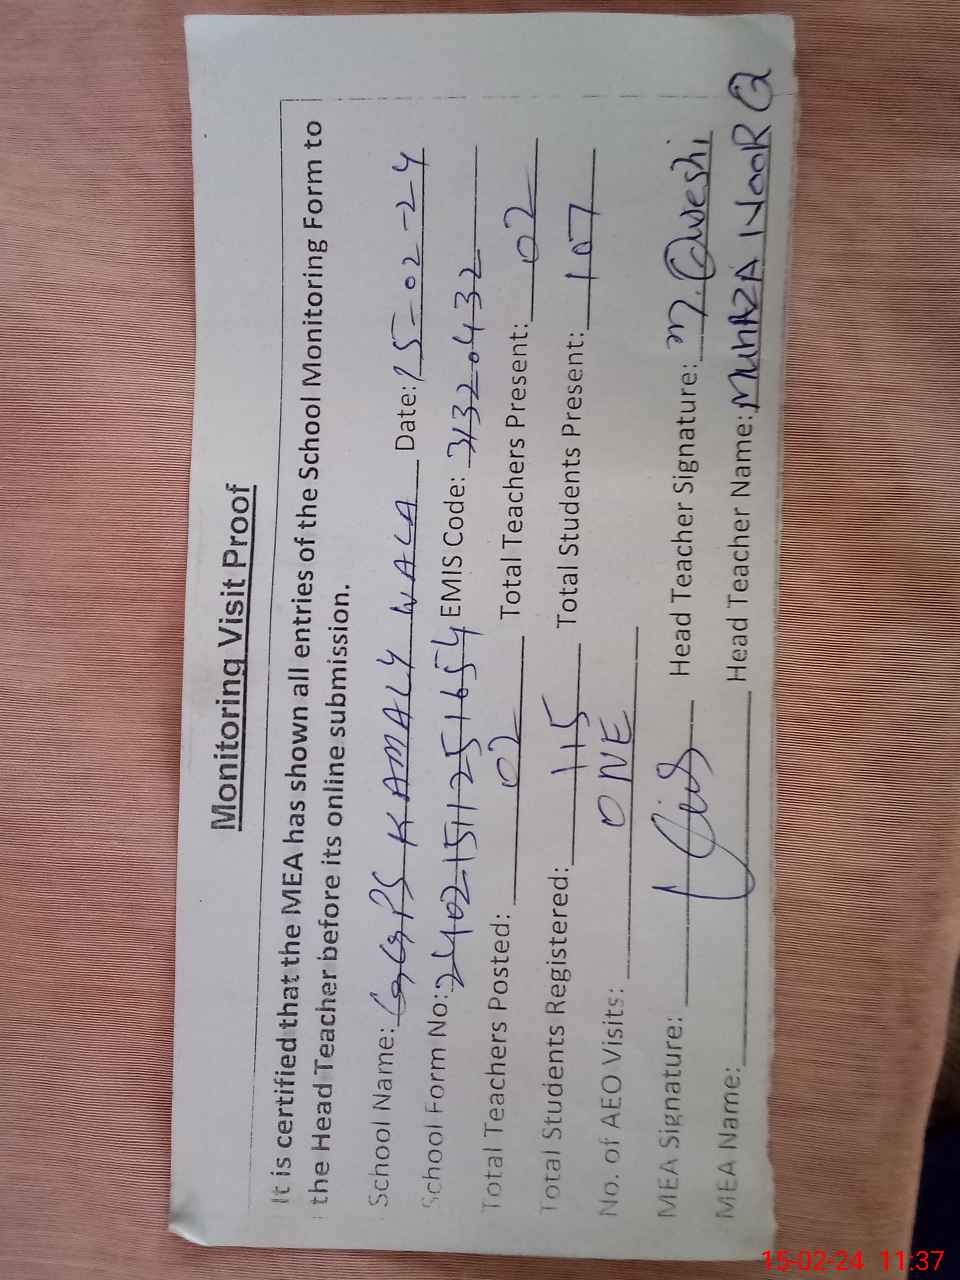 Monitoring Visit Proof
It is certified that the MEA has shown all entries of the School Monitoring Form to
the Head Teacher before its online submission.
School Name: GGPS KAMALY WALA Date: 15-02-24
School Form No: 24021511251654 EMIS Code: 31320432
Total Teachers Posted: 02 Total Teachers Present: 02
Total Students Registered: 115 Total Students Present: 107
No. of AEO Visits: ONE
MEA Signature: Head Teacher Signature: M. Qureshi
MEA Name: Head Teacher Name: NOOR Q
15-02-24 11:37